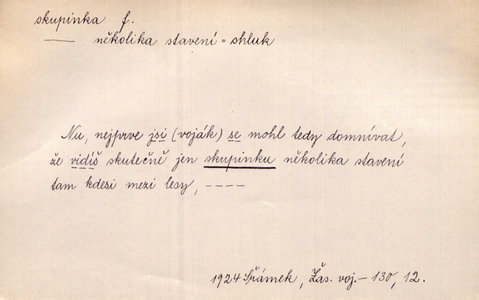 skupinka f.
—— několika stavení = shluk
Nu, nejprve jsi (voják) se mohl tedy domnívat,
že vidíš skutečně jen skupinku několika stavení
tam kdesi mezi lesy, ----
1924 Šrámek, Žas. voj. - 130, 12.